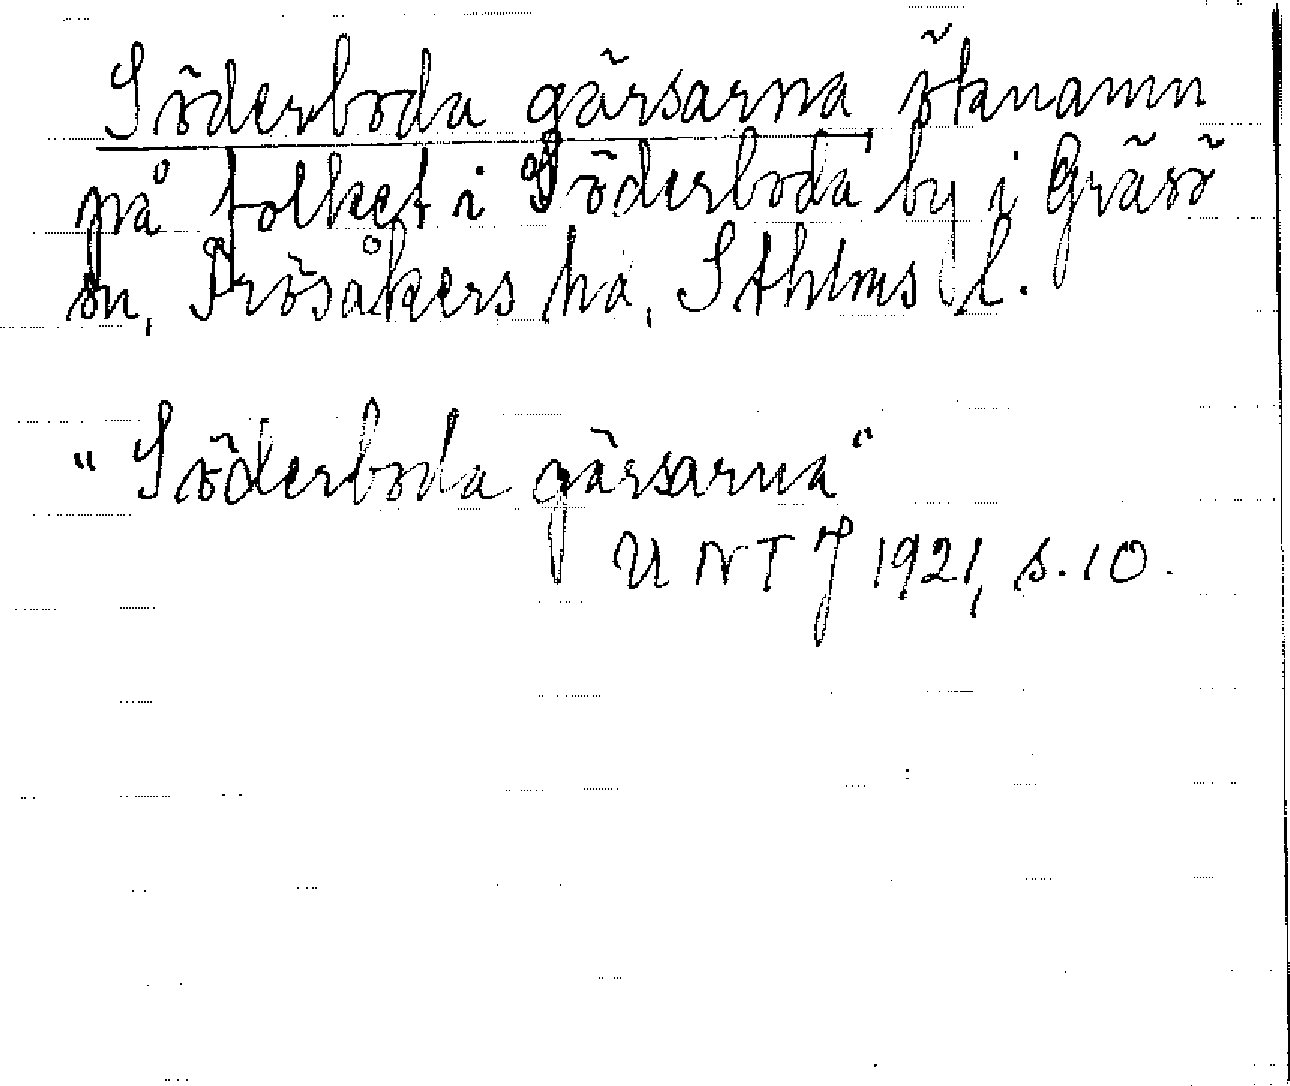 Söderboda gärsarna, öknamn
på folket i Söderboda by i Gräsö
sn, Frösåkers hd, Sthlms l.
"Söderboda gärsarna"
UNTJ 1921, s. 10.